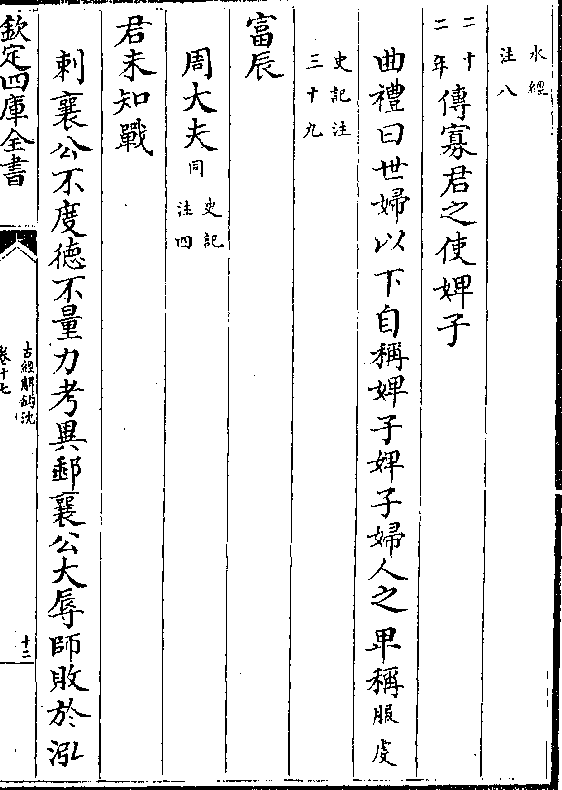 水經
注八
二十
二年傳寡君之使婢子
曲禮曰世婦以下自稱婢子婢子婦人之卑稱服虔
史記注
三十九
富辰
周大夫同史記
注四
君未知戰
刺襄公不度德不量力考異郵襄公大辱師敗於泓
欽定四庫全書
古經解鈎沈
卷十七
十二